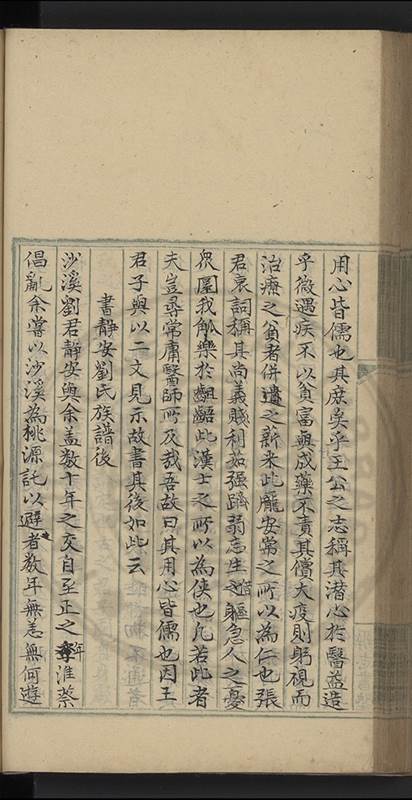 用心皆儒也其庶矣乎王公之志稱其潛心於醫益造
乎微遇疾不以貧富輒成藥不責其償大疫則躬視而
治療之貧者併遺之薪米此龐安常之所以為仁也張
君哀詞稱其尚義賤利茹强躋弱忘生遺軀急人之憂
眾圄我觚樂於齟齬此漢士之所以為俠也凡若此者
夫豈尋常庸醫師所及哉吾故曰其用心皆儒也因王
君子與以二文見示故書其後如此云
書靜安劉氏族譜後
沙溪劉君靜安與余盖数十年之交自至正之年淮蔡
倡亂余嘗以沙溪為桃源託以避者数年無恙無何遊